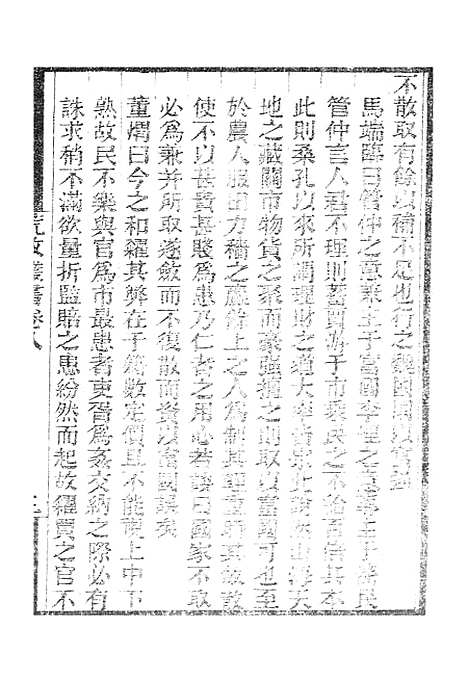 不散取有餘以補不足也行之魏國國以富強
馬端臨曰管仲之意兼主于富國李悝之意專主于濟民
管仲言人君不理則蓄賈游于市乘民之不給百倍其本
此則桑孔以來所謂理財之道大率皆宗此說然山海天
地之藏關市物貨之聚而豪強擅之則取以富國可也至
於農人服田力穡之贏餘上之人為制其輕重時其斂散
使不以甚貴甚賤為患乃仁者之用心若諉曰國家不取
必為兼并所取遂斂而不復散而資以富國誤矣
董煟曰今之和糴其弊在于籍數定價且不能視上中下
熟故民不樂與官為市最患者吏胥為姦交納之際必有
誅求稍不滿欲量折監賠之患紛然而起故糴買之官不
荒政叢書卷八